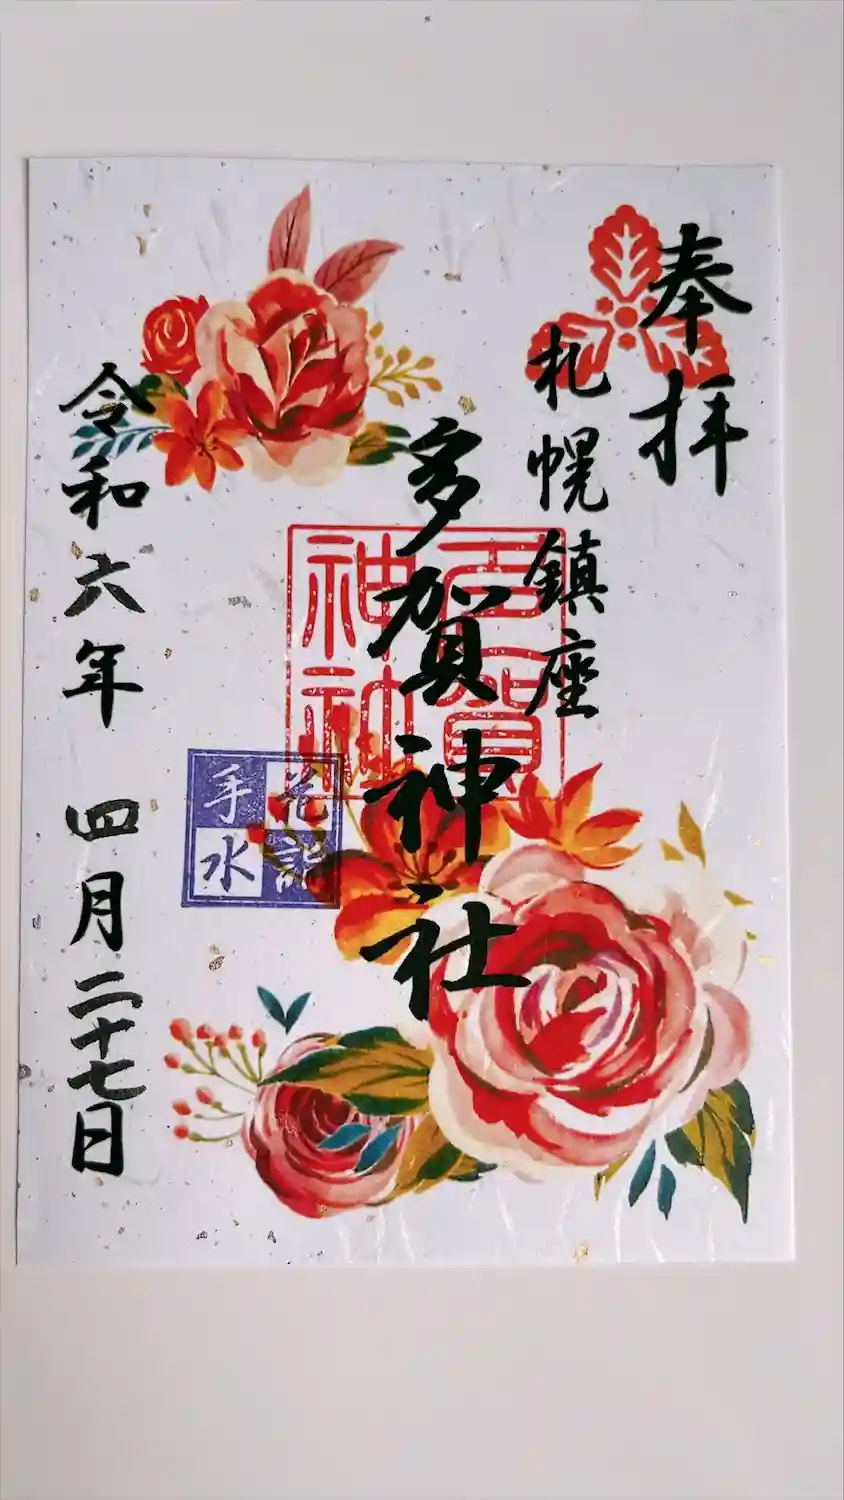 奉拝
札幌鎮座
多賀神社
花詣
手水
令和六年 四月二十七日